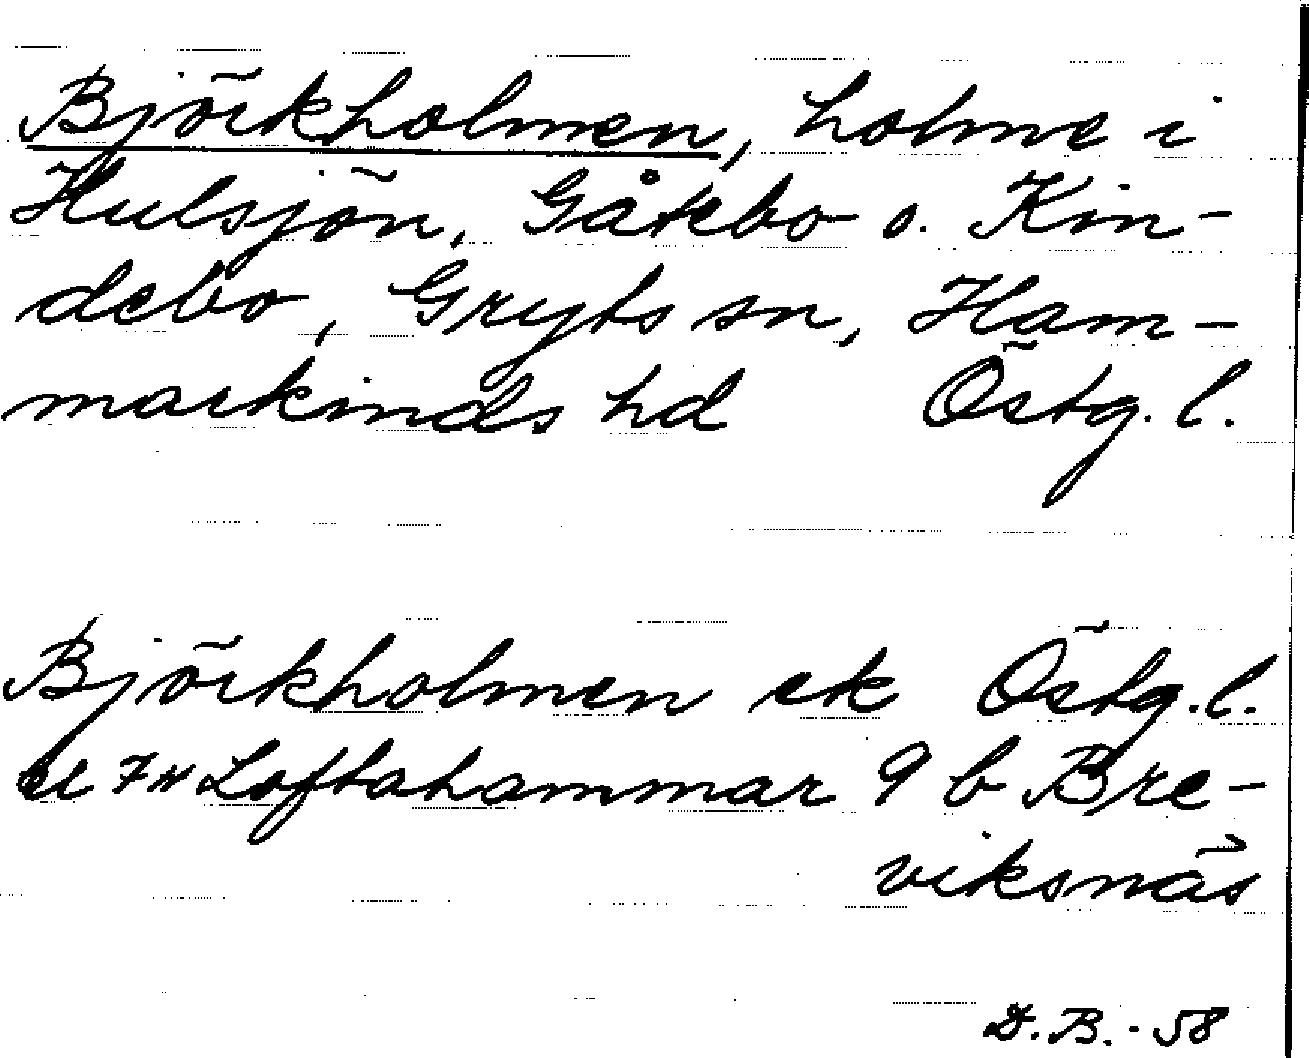 Björkholmen, holme i
Hulsjön, Gåtebo o. Kin-
debo, Gryts sn, Ham-
markinds hd Östg. l.
Björkholmen ek Östg. l.
bl 7 Loftahammar 9 b Bre-
viksnäs
D. B. - 58